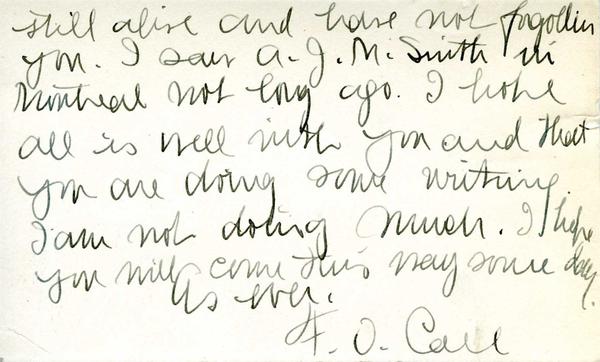 still alive and have not forgotten
you. I saw A. J. M. Smith in
Montreal not long ago. I hope
all is well with you and that
you are doing some writing.
I am not doing much. I hope
you will come this way some day.
As ever.
F. O. Call